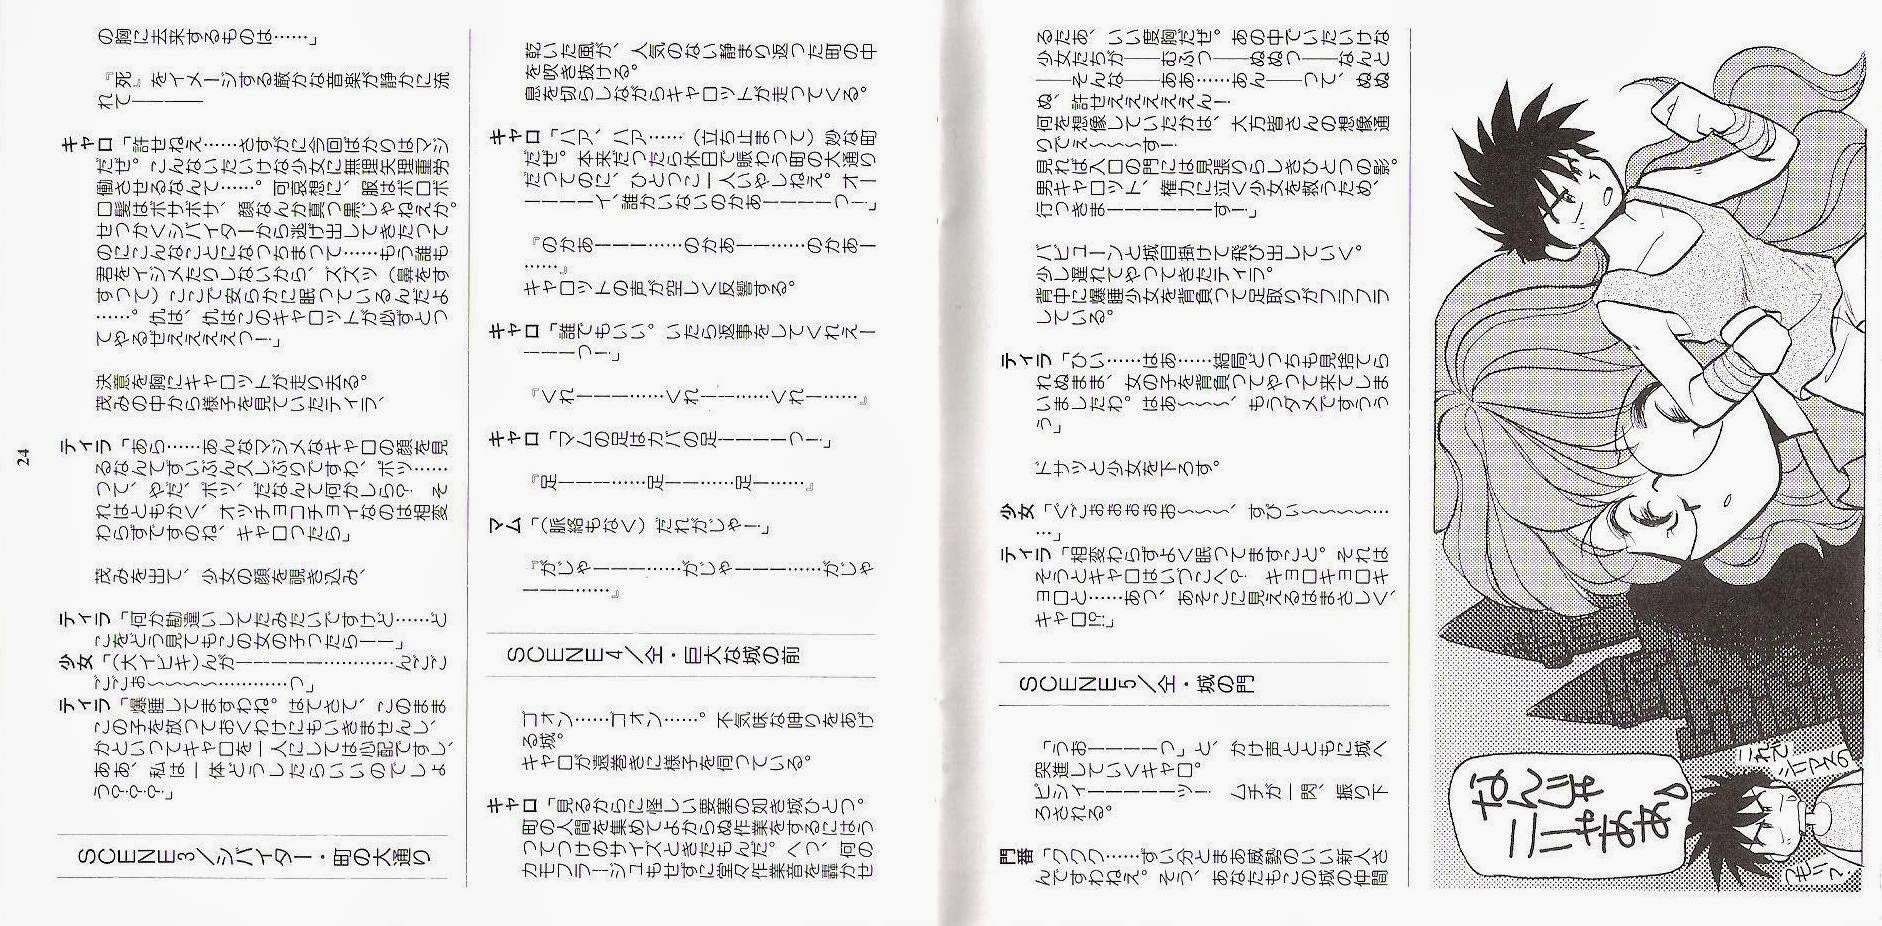 の胸に去来するものは……」
『死』をイメージする厳かな音楽が静かに流
れて————
キャロ「許せねえ……さすがに今回ばかりはマジ
だぜ。こんないたいけな少女に無理矢理重労
働させるなんて……。可哀想に、服はボロボ
ロ髪はボサボサ、顔なんか真っ黒じゃねえか。
せっかくジバイターから逃げ出してきたって
のにこんなことになっちまって……もう誰も
君をイジメたりしないから、ズズッ（鼻をす
すって）ここで安らかに眠っているんだよ
……。仇は、仇はこのキャロットが必ずとっ
てやるぜえええっ！」
決意を胸にキャロットが走り去る。
茂みの中から様子を見ていたティラ、
ティラ「あら……あんなマジメなキャロの顔を見
るなんてずいぶん久しぶりですわ、ポッ……
って、やだ、ポッ、だなんて何かしら？　そ
れはともかく、オッチョコチョイなのは相変
わらずですのね、キャロったら」
茂みを出て、少女の顔を覗き込み、
ティラ「何か勘違いしてたみたいですけど……ど
こをどう見てもこの女の子ったら——」
少女「（大イビキ）んが——————…………んごご
ごごぉ〜〜〜〜…………っ」
ティラ「爆睡してますわね。はてさて、このまま
この子を放っておくわけにもいきませんし、
かといってキャロを一人にしては心配ですし、
ああ、私は一体どうしたらいいのでしょ
う？？？」
24
SCENE3／ジバイター・町の大通り
乾いた風が、人気のない静まり返った町の中
を吹き抜ける。
息を切らしながらキャロットが走ってくる。
キャロ「ハア、ハア……（立ち止まって）妙な町
だぜ。本来だったら休日で賑わう町の大通り
だってのに、ひとっこ一人いやしねえ。オー
————イ、誰かいないのかあ————っ！」
『のかあ———……のかあ——……のかあ—
……』
キャロットの声が空しく反響する。
キャロ「誰でもいい。いたら返事をしてくれえ—
———っ！」
『くれ———……くれ——……くれ—……』
キャロ「マムの足はカバの足————っ！」
『足———……足——……足—……』
マム「（脈絡もなく）だれがじゃ！」
『がじゃ———……がじゃ———……がじゃ
——……』
SCENE4／仝・巨大な城の前
ゴォン……ゴォン……。不気味な唸りをあげ
る城。
キャロが遠巻きに様子を伺っている。
キャロ「見るからに怪しい要塞の如き城ひとつ。
町の人間を集めてよからぬ作業をするにはう
ってつけのサイズときたもんだ。へっ、何の
カモフラージュもせずに堂々作業音を轟かせ
るたあ、いい度胸だぜ。あの中でいたいけな
少女たちが——むふっ——ぬぬっ——なんと
——そんな——ああ……あん——って、ぬぬ
ぬ、許せえええええん！
何を想像していたかは、大方皆さんの想像通
りでえ〜〜〜す！
見れば入口の門には見張りらしきひとつの影。
男キャロット、権力に泣く少女を救うため、
行っきま——————す！」
バビューンと城目掛けて飛び出していく。
少し遅れてやってきたティラ。
背中に爆睡少女を背負って足取りがフラフラ
している。
ティラ「ひい……はあ……結局どっちも見捨てら
れぬまま、女の子を背負ってやって来てしま
いましたわ。はあ〜〜〜、もうダメですうう
う」
ドサッと少女を下ろす。
少女「くごぉぉぉぉお〜〜〜、すぴい〜〜〜〜…
…」
ティラ「相変わらずよく眠ってますこと。それは
そうとキャロはいづこへ？　キョロキョロキ
ョロと……あっ、あそこに見えるはまさしく、
キャロ!?」
SCENE5／仝・城の門
「うお————っ」と、かけ声とともに城へ
突進していくキャロ。
ビシィ—————ッ！　ムチが一閃、振り下
ろされる。
門番「ククク……ずい分とまあ威勢のいい新人さ
んですわねえ。そう、あなたもこの城の仲間
なんじゃ
こりゃあ
ああ
これで
シリアスの
つもり？